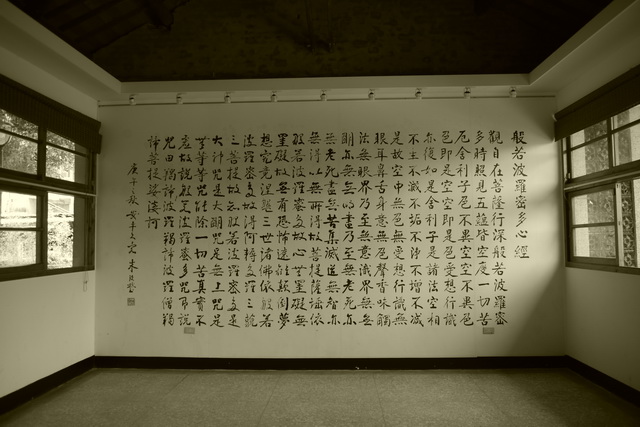 般若波羅蜜多心經
觀自在菩薩行深般若波羅蜜
多時照見五蘊皆空度一切苦
厄舍利子色不異空空不異色
色即是空空即是色受想行識
亦復如是舍利子是諸法空相
不生不滅不垢不淨不增不減
是故空中無色無受想行識無
眼耳鼻舌身意無色聲香味觸
法無眼界乃至無意識界無無
明亦無無明盡乃至無老死亦
無老死盡無苦集滅道無智亦
無得以無所得故菩提薩埵依
般若波羅蜜多故心無罣礙無
罣礙故無有恐怖遠離顛倒夢
想究竟涅槃三世諸佛依般若
波羅蜜多故得阿耨多羅三藐
三菩提故知般若波羅蜜多是
大神咒是大明咒是無上咒是
無等等咒能除一切苦真實不
虛故說般若波羅蜜多咒即說
咒曰羯諦波羅羯諦波羅僧羯
諦菩提娑婆訶
庚子秋